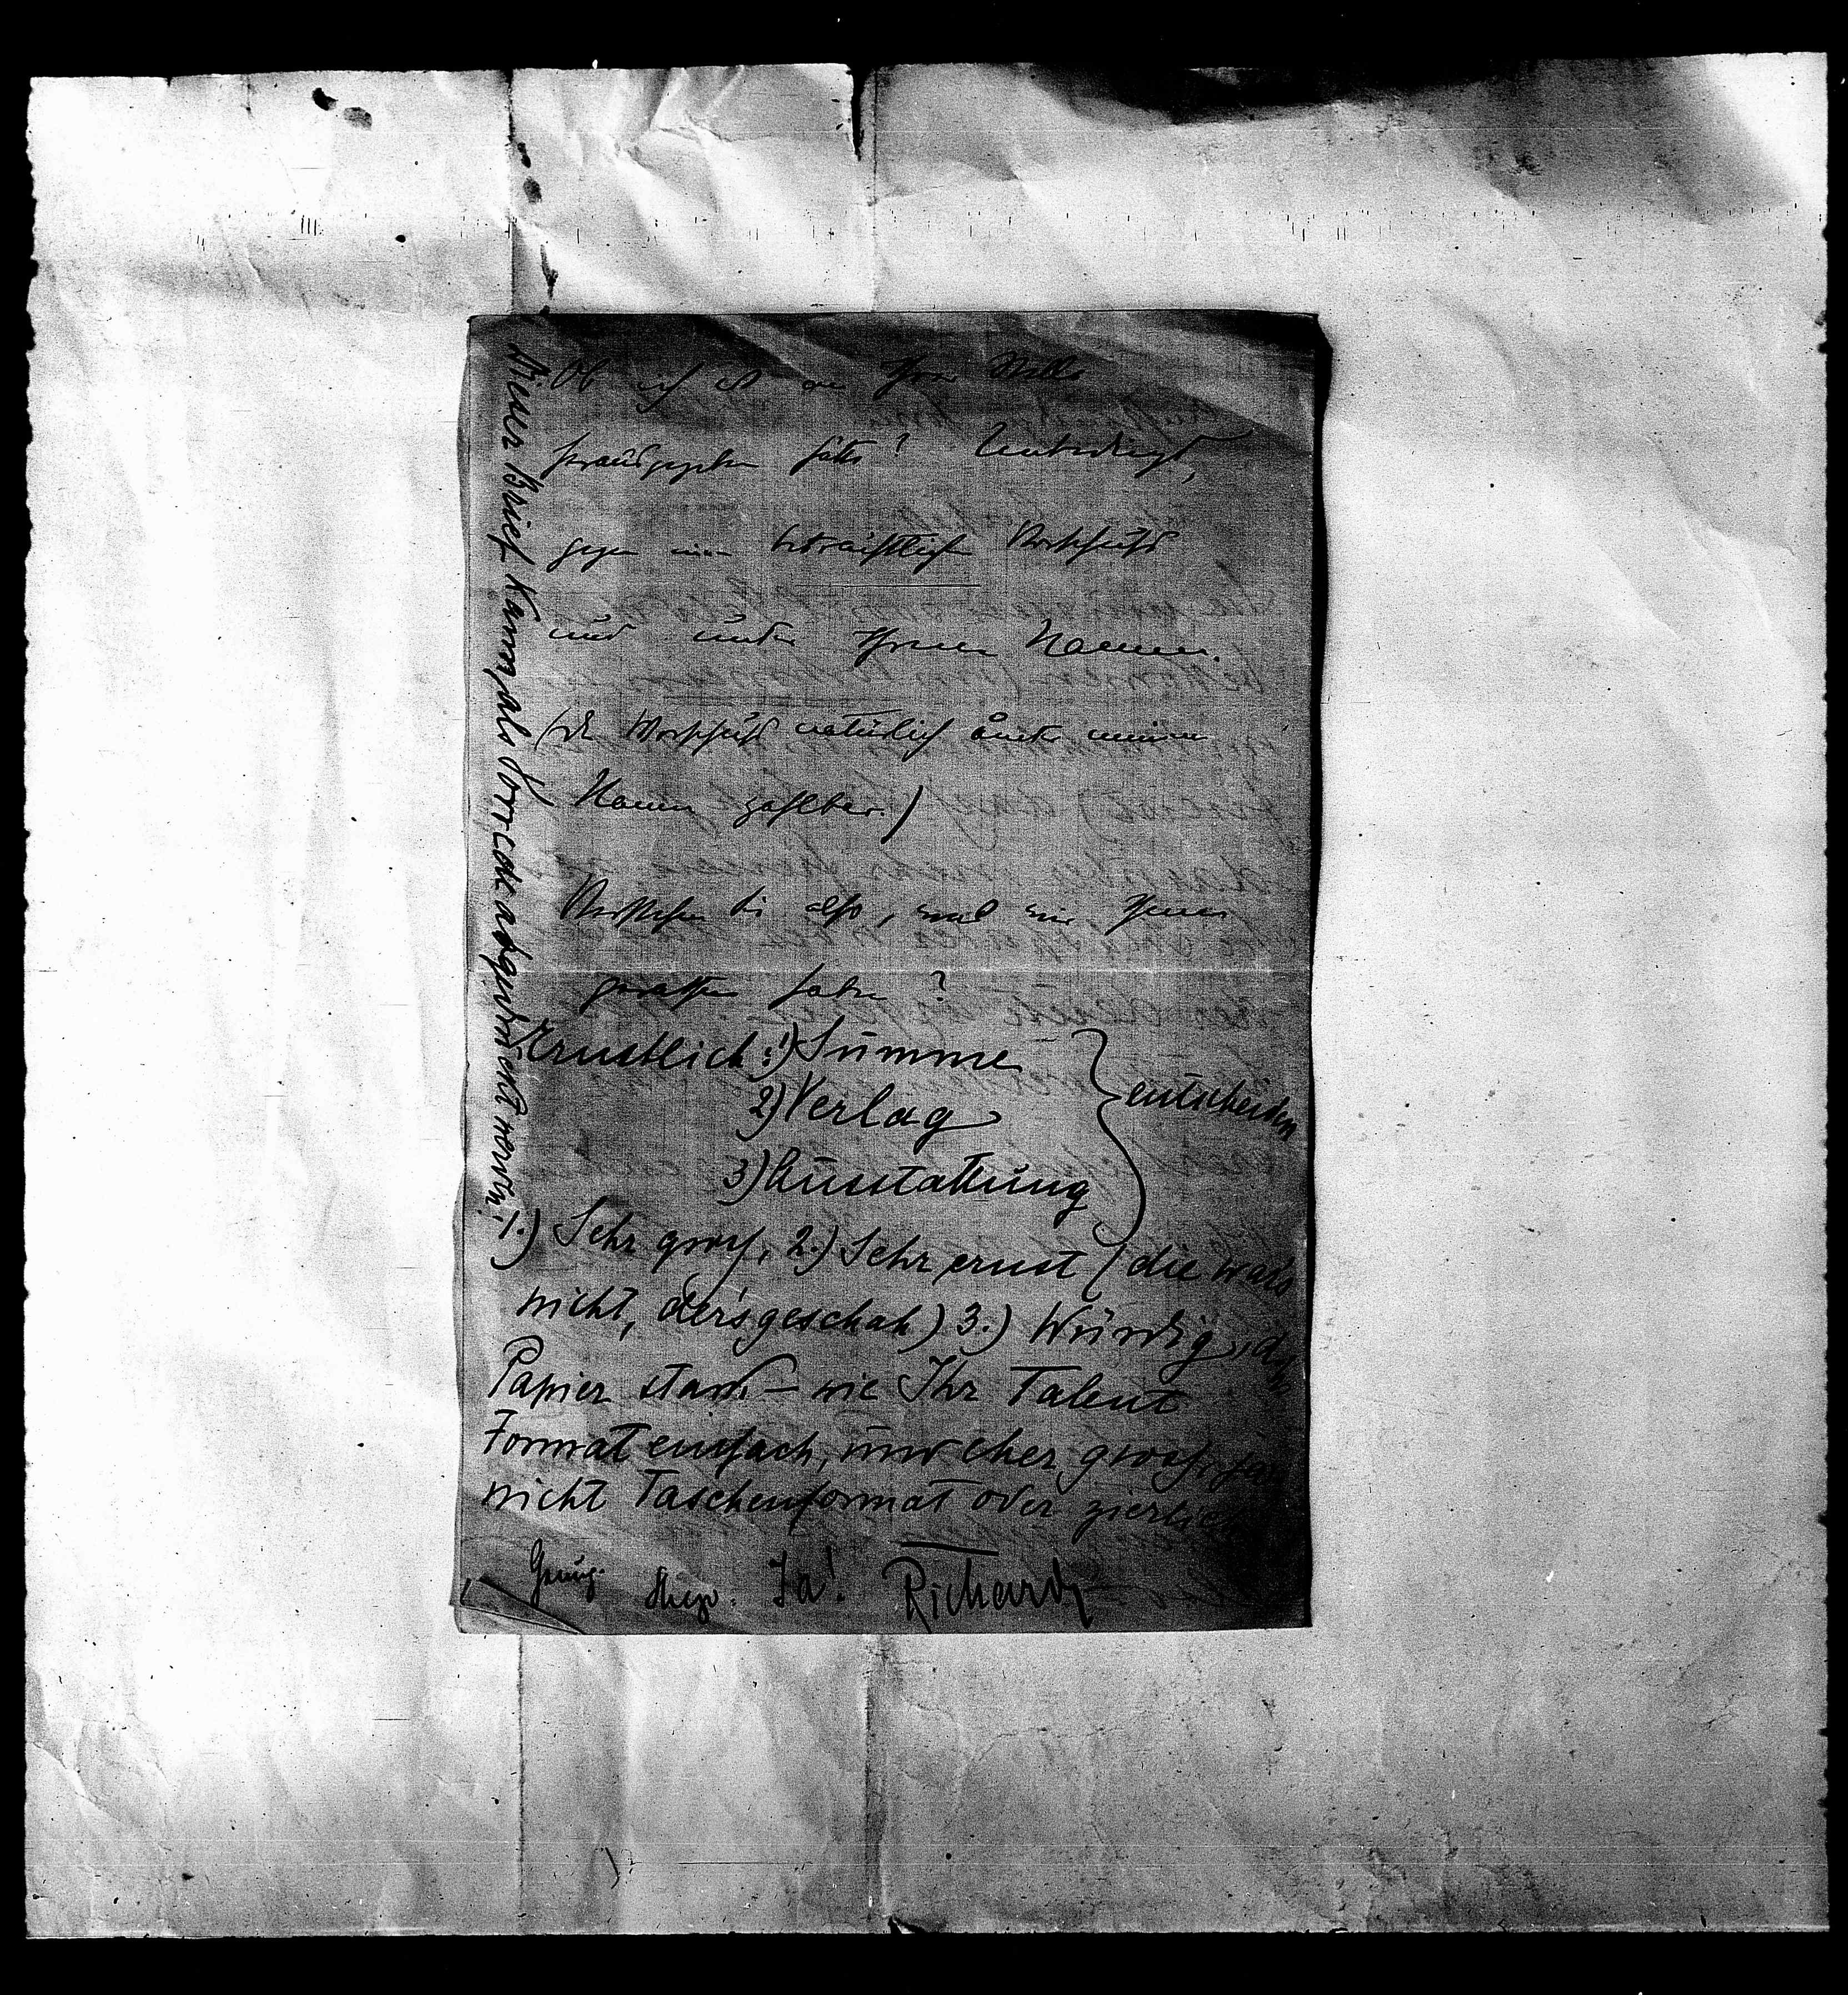 Ob ich es an Ihrer Stelle
herausgegeben hätte? Unbedingt,
gegen einen beträchtlichen Vorschuß
und unter Ihrem Namen.
(der Vorschuß natürlich unter meinem
Namen zahlbar.)
Verstehen Sie also, was wir Ihnen
gerathen haben?
Ernstlich: 1) Summe
2) Verlag
3) Ausstattung
} entscheiden
1.) Sehr gross, 2.) Sehr ernst (die war's
nicht, der's geschah) 3.) Würdig, d.h.
Papier stark – wie Ihr Talent
Format einfach, und eher gross,
nicht Taschenformat oder zierlich
Ja! Richard
Dieser Brief kann als Vorrede abgedruckt werden!